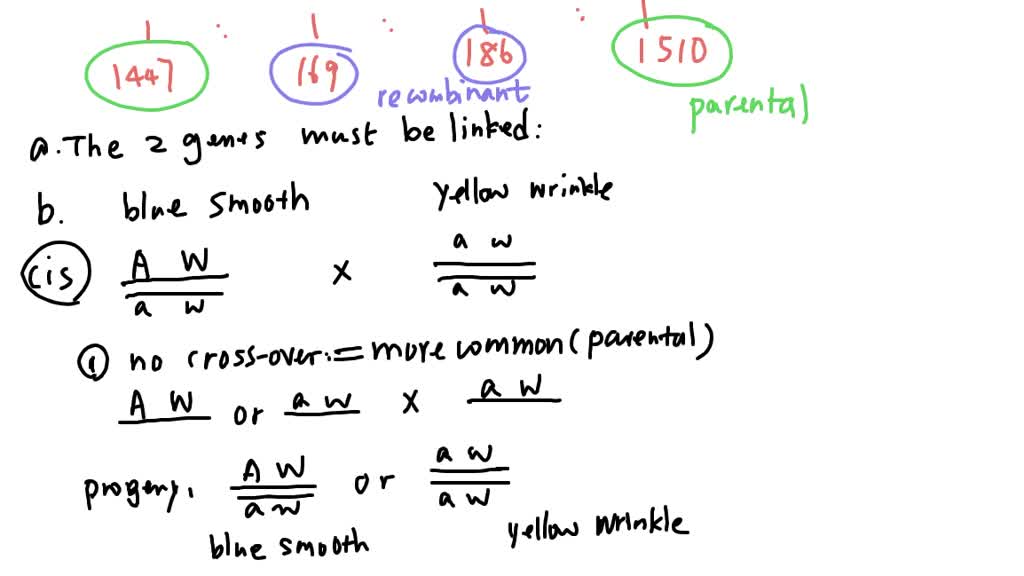 1 : 1 : 1 : 1
1447 169 186 1510
recombinant parental
a. The 2 genes must be linked:
b. blue smooth yellow wrinkle
cis A W x a w
a w a w
① no cross-over := more common (parental)
A W or a w x a w
progeny: A W or a w
a w a w
blue smooth yellow wrinkle